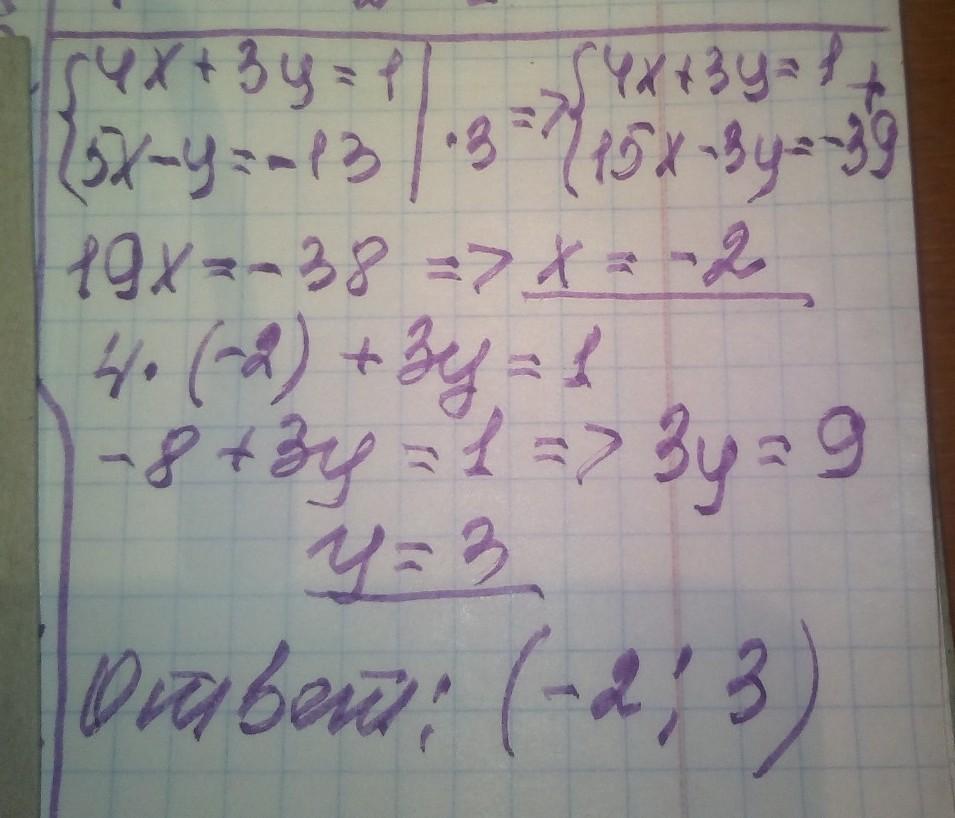 {4x+3y=1 | => {4x+3y=1 +
{5x-y=-13 | ·3 {15x-3y=-39
19x=-38 => x=-2
4·(-2)+3y=1
-8+3y=1 => 3y=9
y=3
Ответ: (-2; 3)